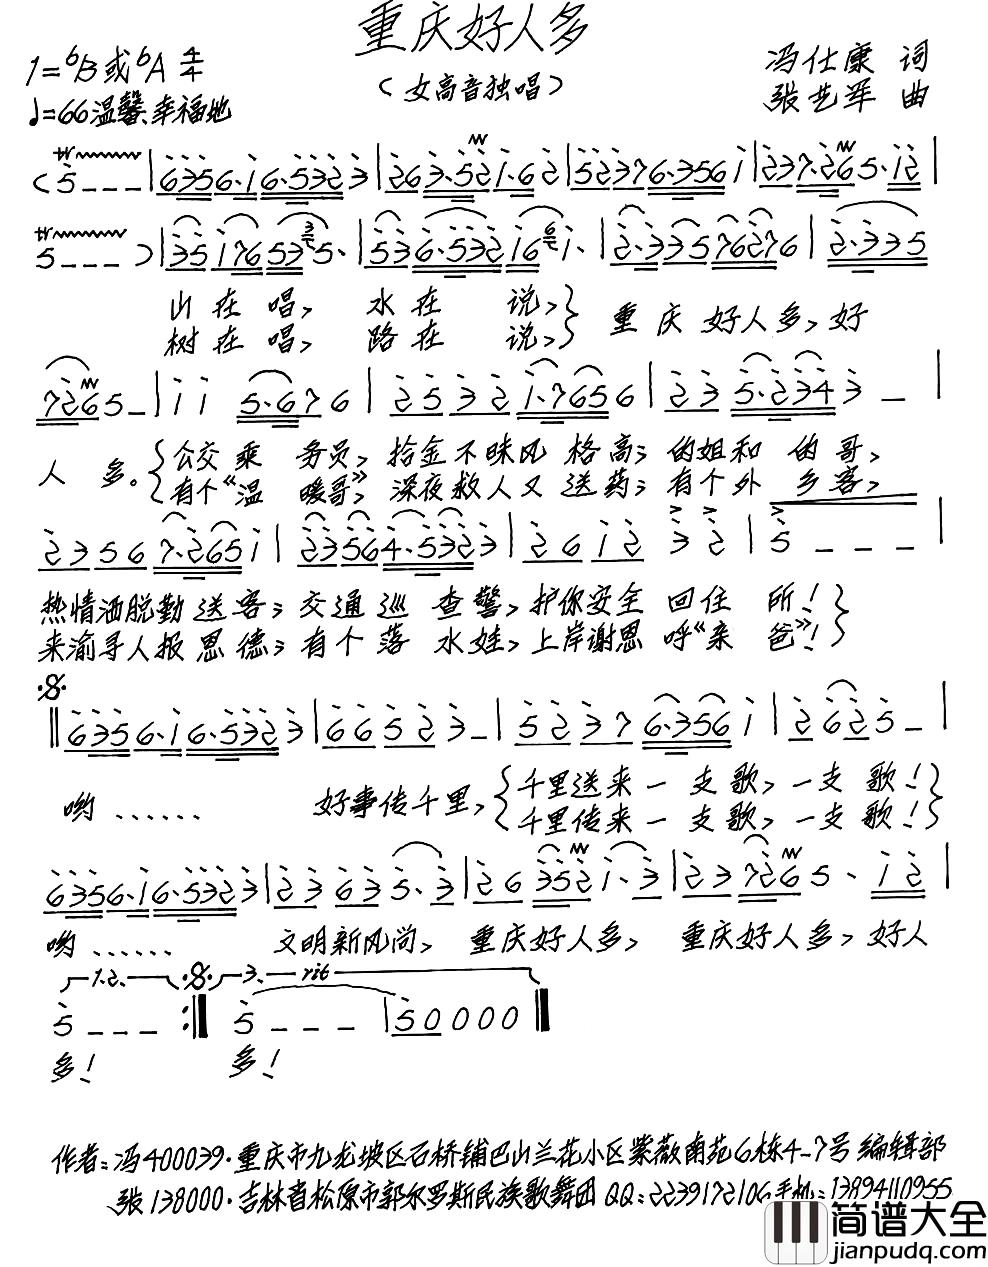 重庆好人多
1=♭B或♭A 4/4
（女高音独唱）
冯仕康 词
♩=66温馨、幸福地
张艺军 曲
(5 - - - | 6356·1 6·5323 | 263·521·62 | 52376·3561 | 237·265·12 |
5 - - - ) | 35176535· | 536·532161· | 2·33576276 | 2·335
山在唱，水在说，重庆好人多，好
树在唱，路在说，
7265 - | 11 5·676 | 2532 1·7656 | 23 5·2343 - |
人多。公交乘务员，拾金不昧风格高；的姐和的哥，
有个《温暖哥》，深夜救人又送药；有个外乡客，
2356 7·2651 | 23564·5323 | 2612 32 | 5 - - - |
热情洒脱勤送客；交通巡查警，护你安全回住所！
来渝寻人报恩德；有个落水娃，上岸谢恩呼《亲爸》！
6356·1 6·5323 | 66523 - | 5237 6·3561 | 2625 - |
哟......好事传千里，千里送来一支歌，一支歌！
千里传来一支歌，一支歌！
6356·16·5323 | 23 63 5·3 | 26 3521·3 | 237265·12 |
哟......文明新风尚，重庆好人多，重庆好人多，好人
1.2. 3. rit
5 - - - :‖ 5 - - - | 50000 ‖
多！多！
作者：冯400039·重庆市九龙坡区石桥铺巴山兰花小区紫薇南苑6栋4-7号 编辑部
张138000·吉林省松原市郭尔罗斯民族歌舞团QQ：2239172106手机：13894110955
简谱大全
jianpudq.com